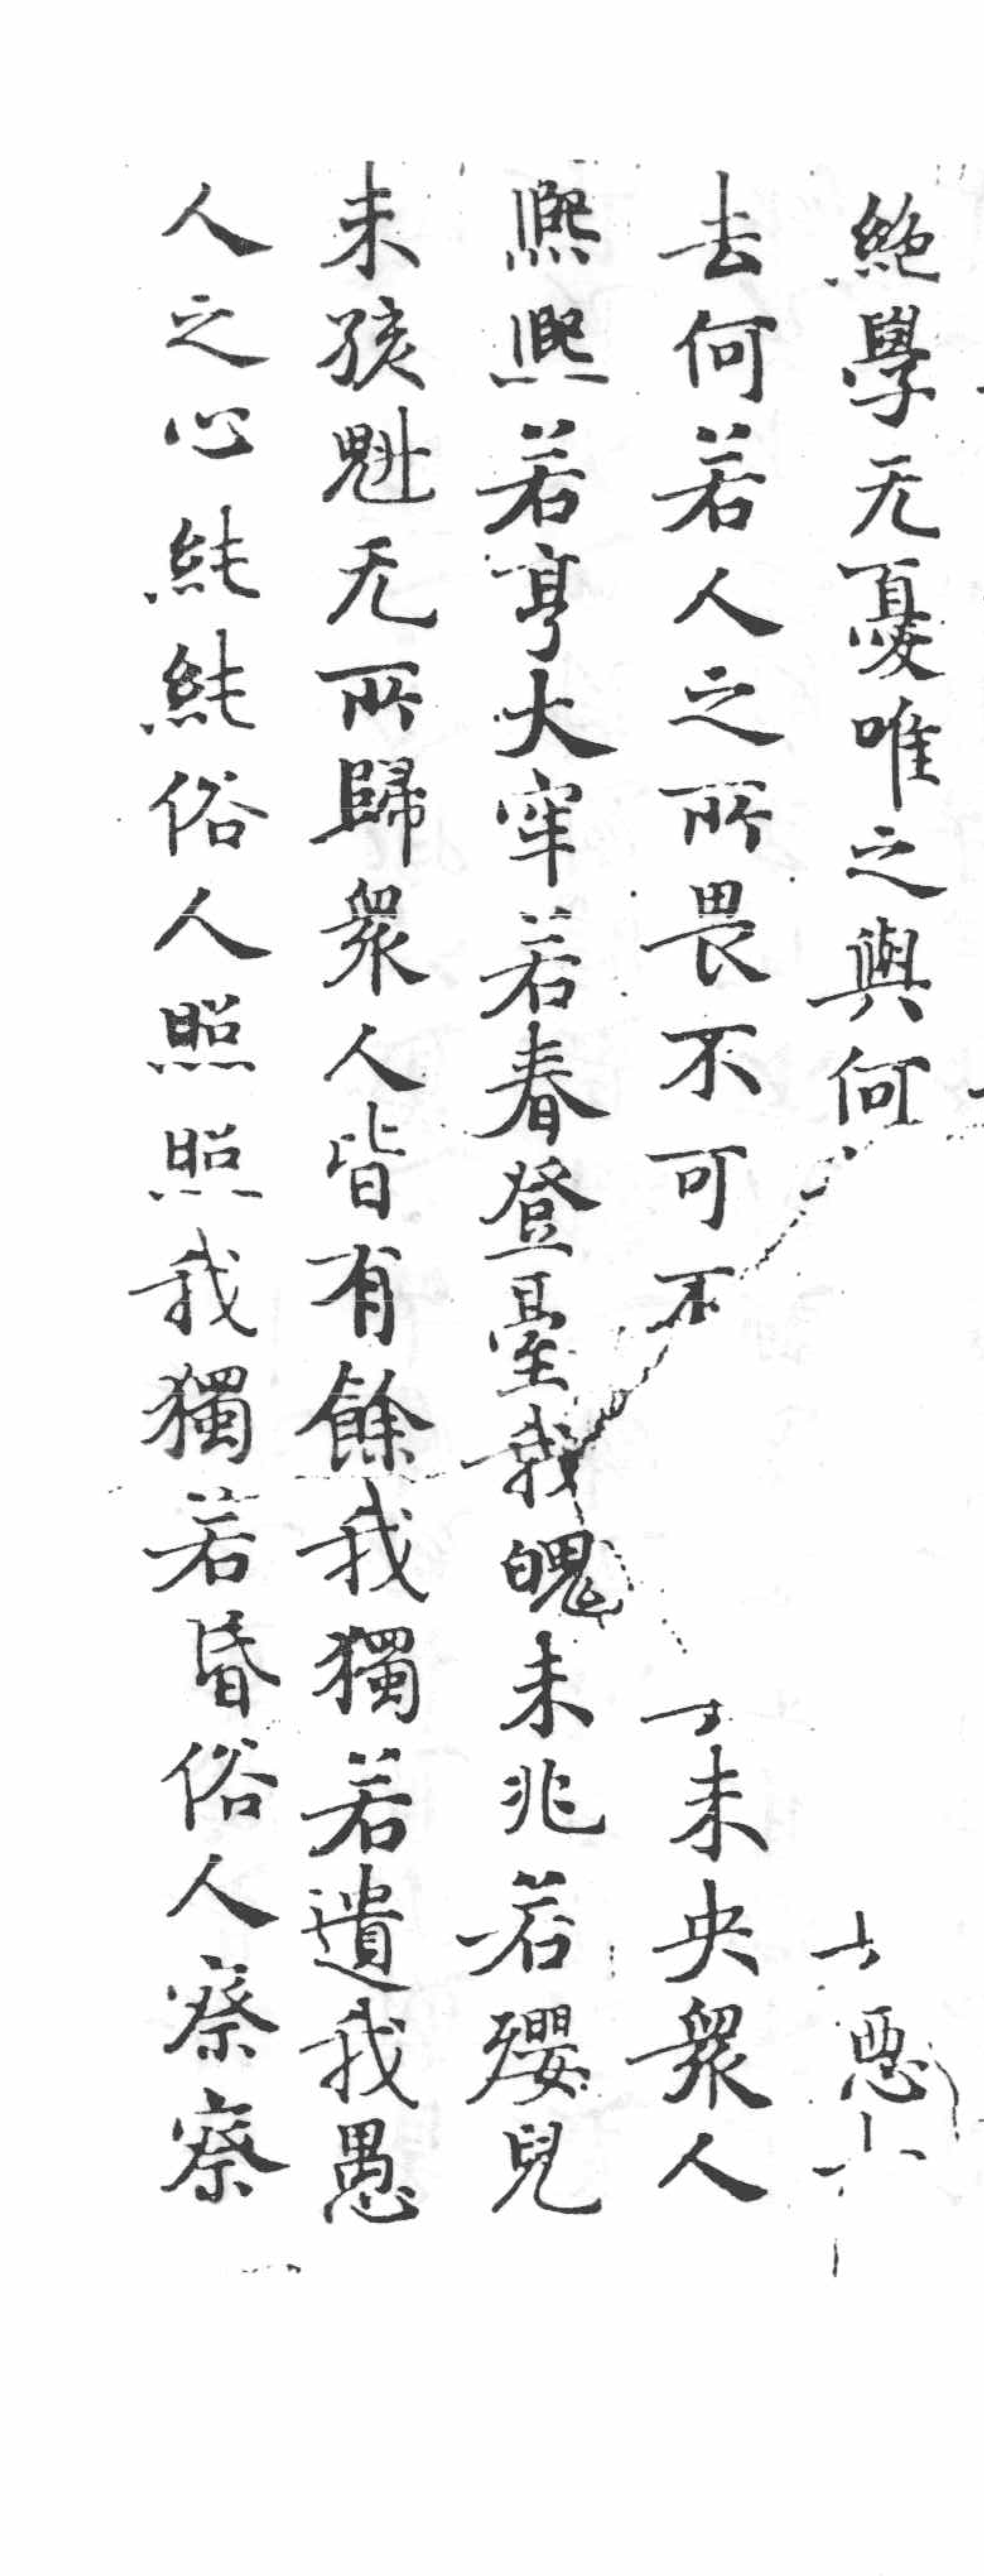 絶學无憂唯之與何惡
去何若人之所畏不可不未央衆人
熈熈若亨大牢若春登臺我魄未兆若嬰兒
未孩魁无所歸衆人皆有餘我獨若遺我愚
人之心純純俗人照照我獨若昏俗人察察